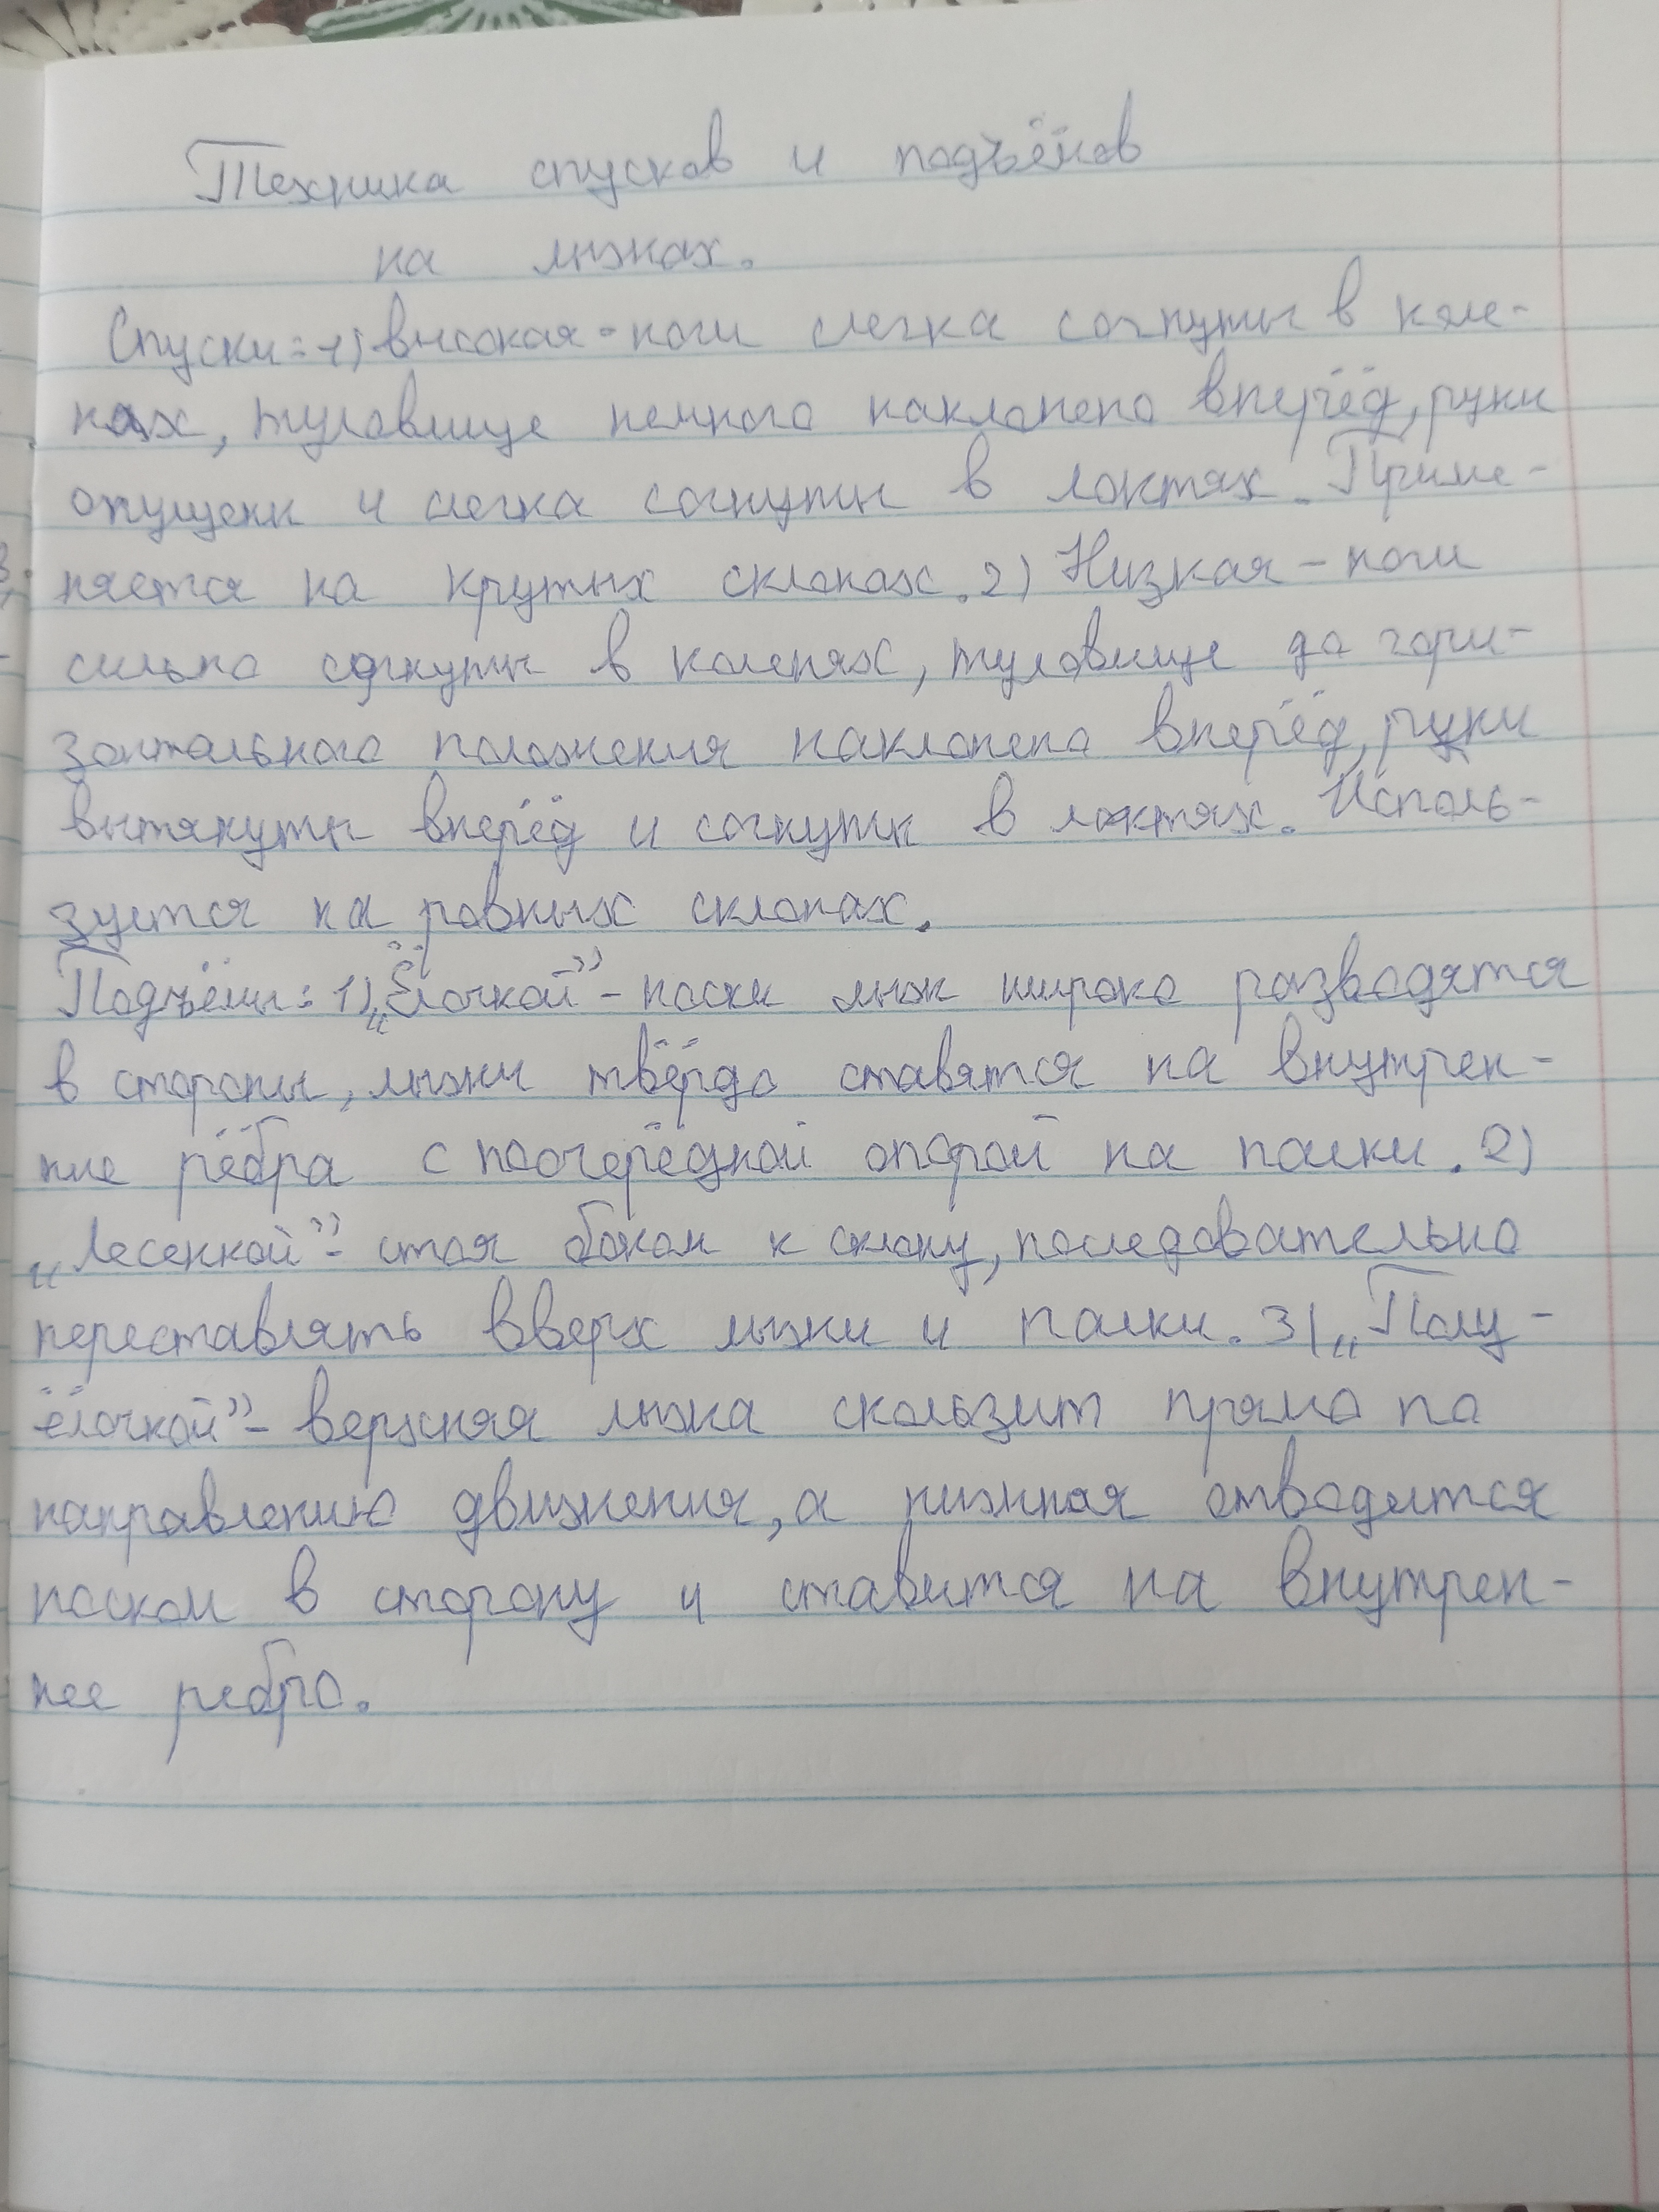 Техника спусков и подъёмов
на лыжах.
Спуски: 1) высокая - ноги слегка согнуты в коле-
нах, туловище немного наклонено вперёд, руки
опущены и слегка согнуты в локтях. Приме-
няется на крутых склонах. 2) Низкая - ноги
сильно согнуты в коленях, туловище до гори-
зонтального положения наклонено вперёд, руки
вытянуты вперёд и согнуты в локтях. Исполь-
зуется на ровных склонах.
Подъёмы: 1) „Ёлочкой” - носки лыж широко разводятся
в стороны, лыжи твёрдо ставятся на внутрен-
ние рёбра с поочерёдной опорой на палки. 2)
„Лесенкой” - стоя боком к склону, последовательно
переставлять вверх лыжи и палки. 3) „Полу-
ёлочкой” - верхняя лыжа скользит прямо по
направлению движения, а нижняя отводится
носком в сторону и ставится на внутрен-
нее ребро.